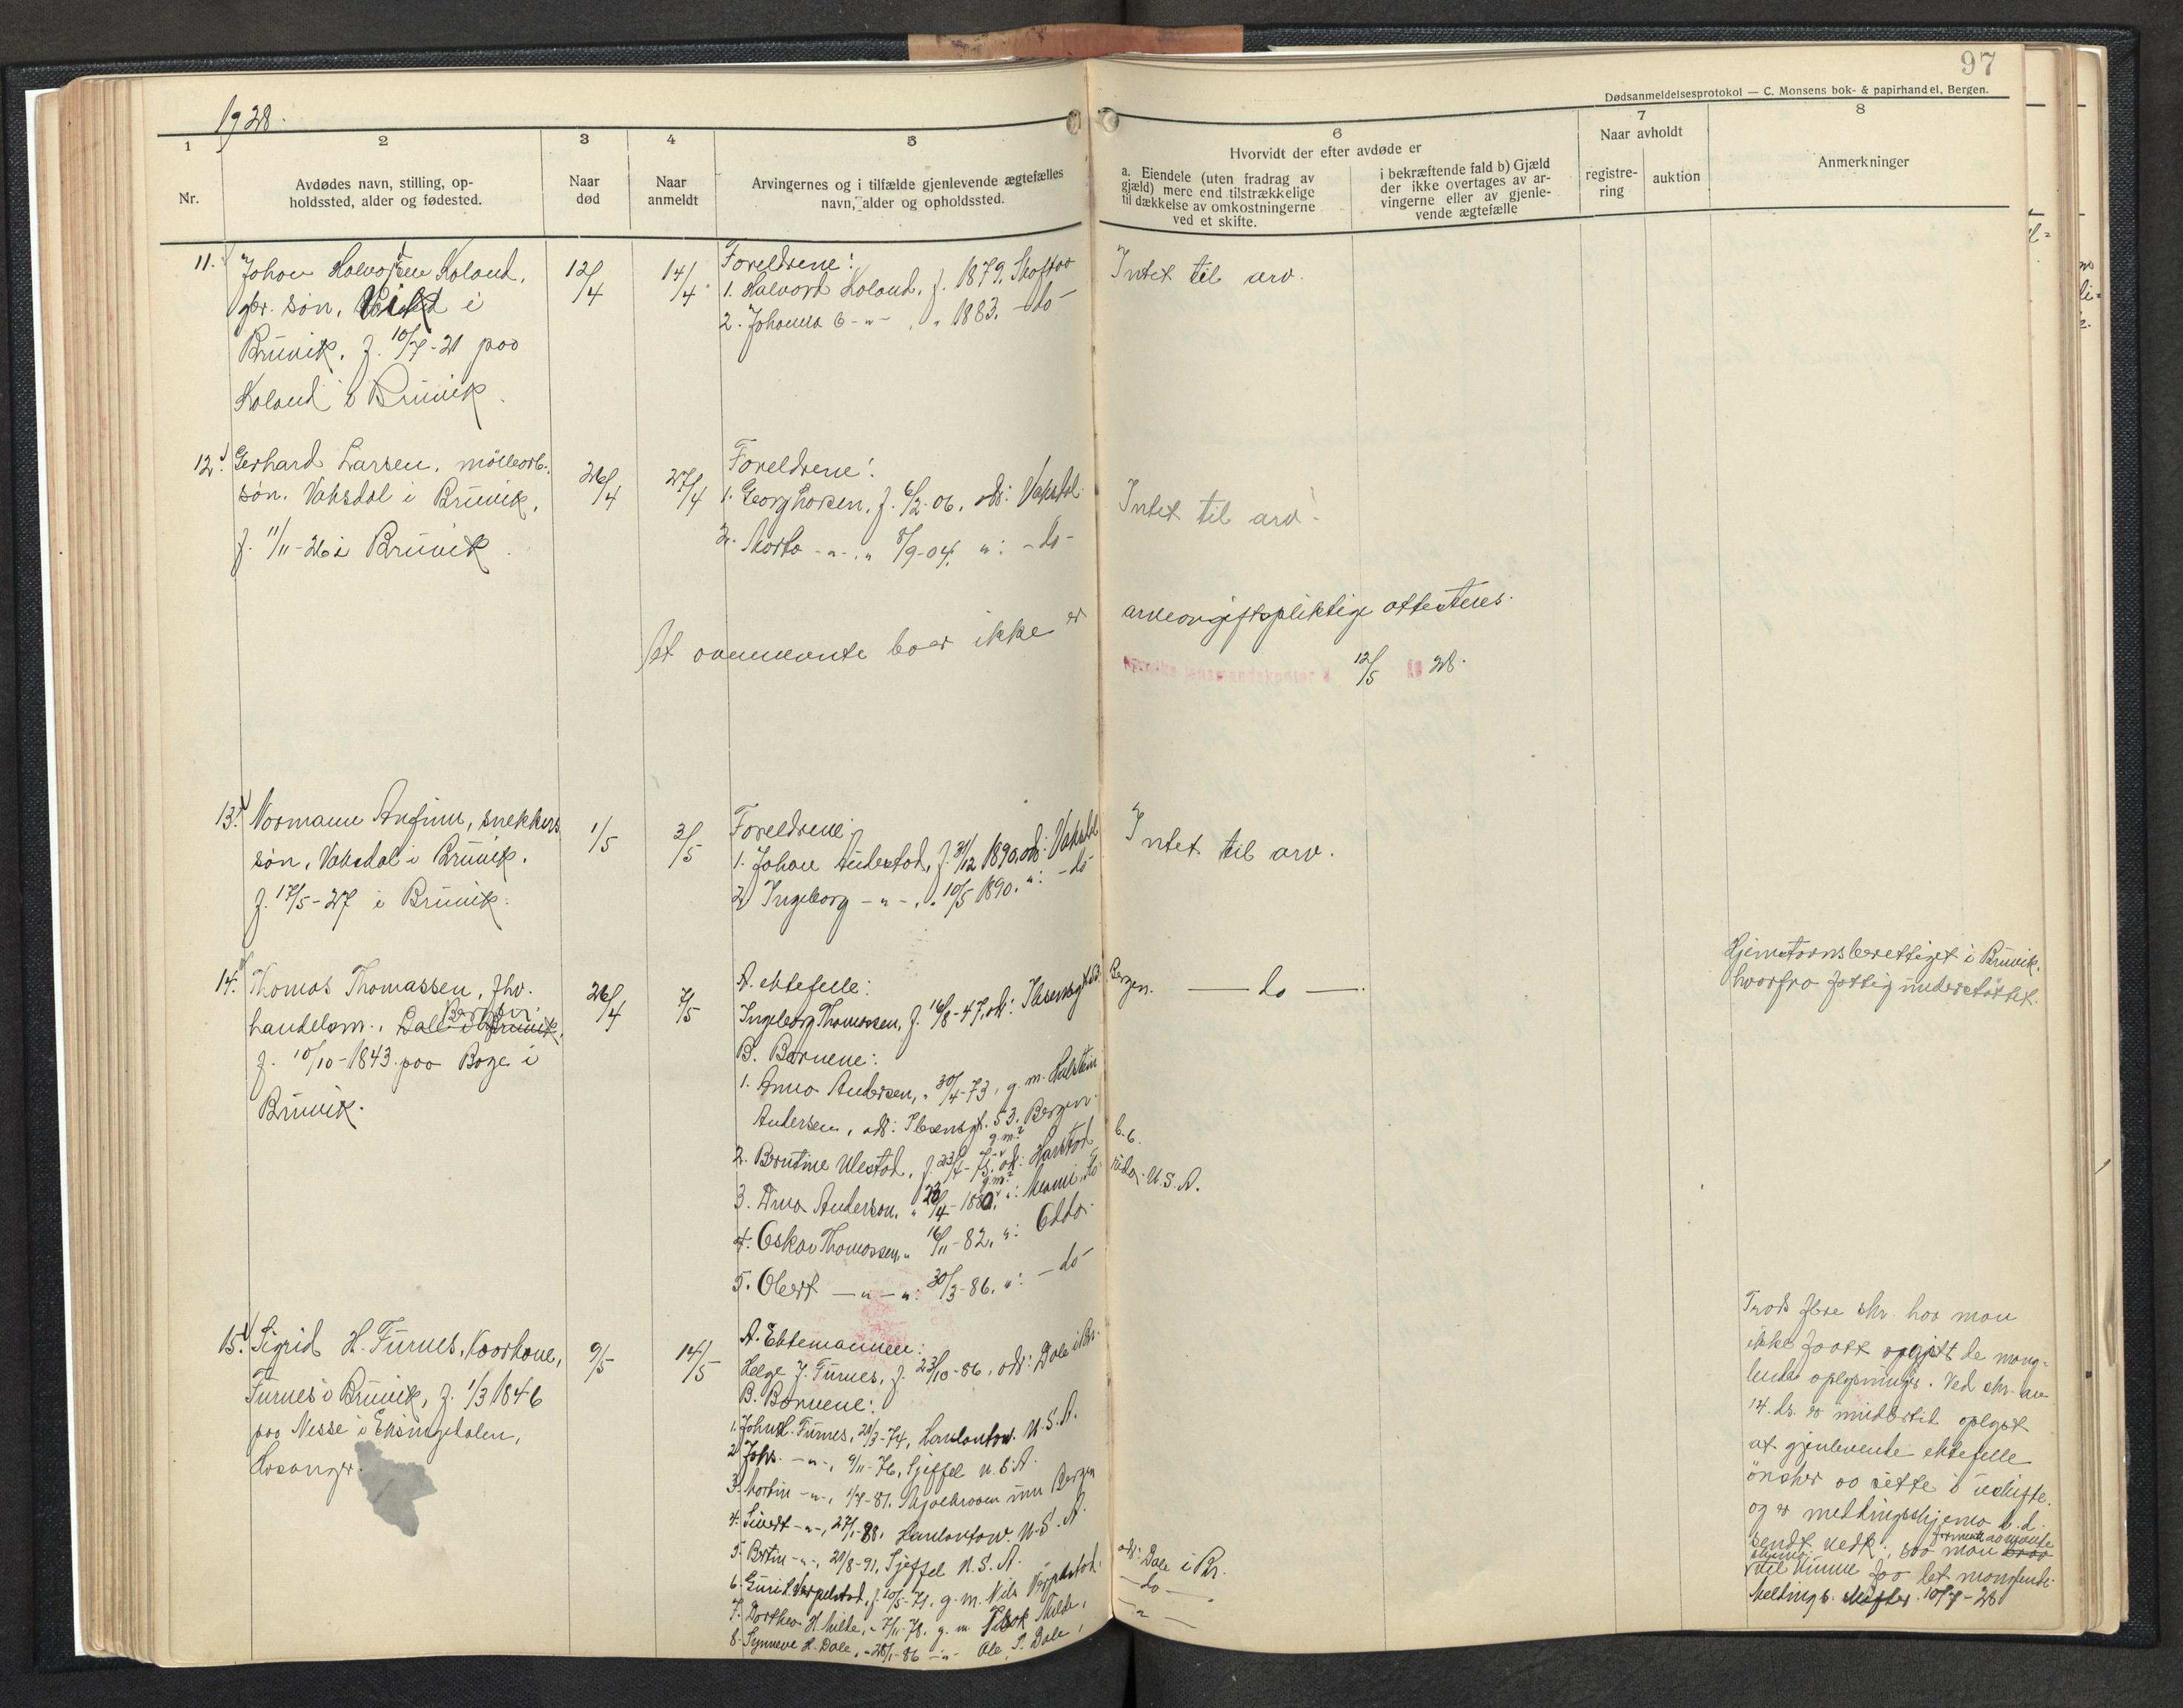 97
Dødsanmeldelsesprotokol — C. Monsens bok- & papirhandel, Bergen.
1928.
1
2
3
4
5
6
7
8
Nr.
Avdødes navn, stilling, op-
holdssted, alder og fødested.
Naar
død
Naar
anmeldt
Arvingernes og i tilfælde gjenlevende ægtefælles
navn, alder og opholdssted.
Hvorvidt der efter avdøde er
a. Eiendele (uten fradrag av
gjæld) mere end tilstrækkelige
til dækkelse av omkostningerne
ved et skifte.
i bekræftende fald b) Gjæld
der ikke overtages av ar-
vingerne eller av gjenle-
vende ægtefælle
Naar avholdt
registre-
ring
auktion
Anmerkninger
11. Johan Halvorsen Koland,
gbr. søn, i
Bruvik, f. 10/7-21 paa
Koland i Bruvik.
12/4
14/4
Foreldrene:
1. Halvard Koland, f. 1879,
2. Johanna -"- , " 1883. -do-
Intet til arv.
12. Gerhard Larsen, møllearb.
søn, Vaksdal i Bruvik,
f. 11/11-26 i Bruvik.
26/4
27/4
Foreldrene:
1. Georg Larsen, f. 6/2-06, adr: Vaksdal
2. Marta -"-, " 8/9-04, ": -do-
Intet til arv.
At ovennevnte boer ikke er arveavgiftspliktige attesteres.
12/5 19 28.
13. Normann Arfinn, snekkers
søn, Vaksdal i Bruvik.
f. 17/5-27 i Bruvik.
1/5
3/5
Foreldrene:
1. Johan, f. 31/12 1890, adr: Vaksdal
2. Ingeborg -"-, " 10/5 1890. ": -do-
Intet til arv.
14. Thomas Thomassen, fhv.
handelsm., Dale i Bruvik, Bergen
f. 10/10-1843 paa Boge i
Bruvik.
26/4
7/5
A. ektefelle:
Ingeborg Thomassen, f. 16/8-47, adr: Ibsensgt. 53. Bergen.
B. Barnene:
1. Anna Andersen, " 30/4-73, g. m.
Andersen, adr: Ibsensgt. 53, Bergen.
2. Berntine Ulestad, f. 23/ -75, adr: Harstad
g.m.?
3. Anderson, " /4-1880, ": U.S.A.
g.m.?
4. Oskar Thomassen, " 16/11-82, ": Odda.
5. Obert -"- ": 30/3-86. ": -do-
— do —.
Hjemstavnsberettiget i Bruvik,
hvorfra fattigunderstøttet.
15. Sigrid H. Furnes, kaarkone,
Furnes i Bruvik, f. 1/3 1846
paa Nesse i Eksingedalen,
Hosanger.
9/5
14/5
A. Ektemannen:
Helge J. Furnes, f. 23/10-86, adr: Dale i Br.
B. Barnene:
1. John H. Furnes, 21/3-74, U.S.A.
2. Johs. -"-, 9/11-76, Sjeffel U.S.A.
3. Martin -"-, 1/7-81. Bergen
4. Sivert -"-, 27/1-88. U.S.A.
5. Bertin -"-, 21/8-91, Sjeffel U.S.A.
6. Guri H. Varpelstad, f. 10/5-71. g. m. Nils Varpelstad. adr: Dale i Br.
7. Dorthea H. Milde, " 7/11-78. g. m. Milde, —do—
8. Synneve H. Dale, " 28/1-86 -"- Ole S. Dale, —"—
Trods flere skr. har man
ikke faatt opgitt de mang-
lende oplysninger. Ved skr. av
14. ds. er imidlertid oplyst
at gjenlevende ektefelle
ønsker aa sitte i uskifte.
og er meldingsskjema b. d.
sendt vedk., saa man
til kunne faa det manglende.
Melding s. skifter. 10/7-28